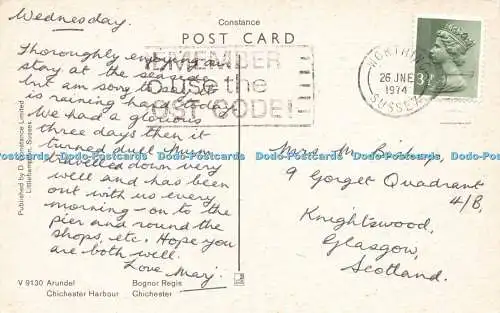 Wednesday.
Constance
POST CARD
Thoroughly enjoying our
stay at the seaside
but am sorry to say it
is raining hard today.
We had a glorious
three days then it
turned dull. Mum
travelled down very
well and has been
out with us every
morning - on to the
pier and round the
shops, etc. Hope you
are both well.
Love Marj.
REMEMBER
to use the
POST CODE!
WORTHING
26 JNE
1974
SUSSEX
Mrs M. Bishop,
9 Gorget Quadrant
4/B,
Knightswood,
Glasgow,
Scotland.
Published by D. Constance Limited
Littlehampton, Sussex
V 9130 Arundel
Chichester Harbour
Bognor Regis
Chichester
Dodo-Postcards Dodo-Postcards Dodo-Postcards Dodo-Postcards Dodo-Postcards Dodo-Postcards